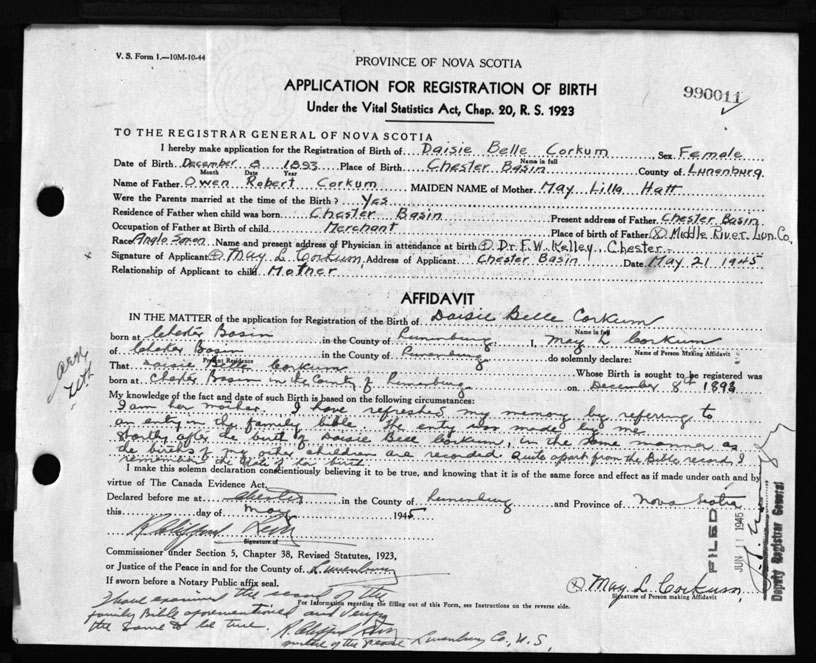 V. S. Form 1.—10M-10-44
PROVINCE OF NOVA SCOTIA
APPLICATION FOR REGISTRATION OF BIRTH
990011
Under the Vital Statistics Act, Chap. 20, R. S. 1923
TO THE REGISTRAR GENERAL OF NOVA SCOTIA
I hereby make application for the Registration of Birth of Daisie Belle Corkum Sex Female
Name in full
Date of Birth December 8 1893 Place of Birth Chester Basin County of Lunenburg
Month Date Year
Name of Father Owen Robert Corkum MAIDEN NAME of Mother May Lilla Hatt
Were the Parents married at the time of the Birth? Yes
Residence of Father when child was born Chester Basin Present address of Father Chester Basin
Occupation of Father at Birth of child Merchant Place of birth of Father Middle River Lun. Co.
Race Anglo Saxon Name and present address of Physician in attendance at birth Dr. F. W. Kelley, Chester
Signature of Applicant May L Corkum, Address of Applicant Chester Basin Date May 21 1945
Relationship of Applicant to child Mother
AFFIDAVIT
IN THE MATTER of the application for Registration of the Birth of Daisie Belle Corkum
Name in full
born at Chester Basin in the County of Lunenburg, I, May L Corkum
Name of Person Making Affidavit
of Chester Basin in the County of Lunenburg do solemnly declare:
Present Residence
That Daisie Belle Corkum Whose Birth is sought to be registered was
born at Chester Basin in the County of Lunenburg on December 8th 1893
My knowledge of the fact and date of such Birth is based on the following circumstances:
I am her mother. I have refreshed my memory by referring to
an entry in the family bible. The entry was made by me
shortly after the birth of Daisie Belle Corkum, in the same manner as
the births of my other children are recorded. Quite apart from the Bible record I
the date of her birth.
I make this solemn declaration conscientiously believing it to be true, and knowing that it is of the same force and effect as if made under oath and by
virtue of The Canada Evidence Act.
Declared before me at Chester in the County of Lunenburg and Province of Nova Scotia
this day of May 1945
R. Clifford
Signature of
Commissioner under Section 5, Chapter 38, Revised Statutes, 1923,
or Justice of the Peace in and for the County of Lunenburg
If sworn before a Notary Public affix seal.
May L Corkum,
Signature of Person making Affidavit
For Information regarding the filling out of this Form, see Instructions on the reverse side.
I have examined the record of the
family Bible aforementioned and
the same to be true.
R. Clifford
Justice of the Peace Lunenburg Co., N.S.
FILED
JUN 11 1945
Deputy Registrar General